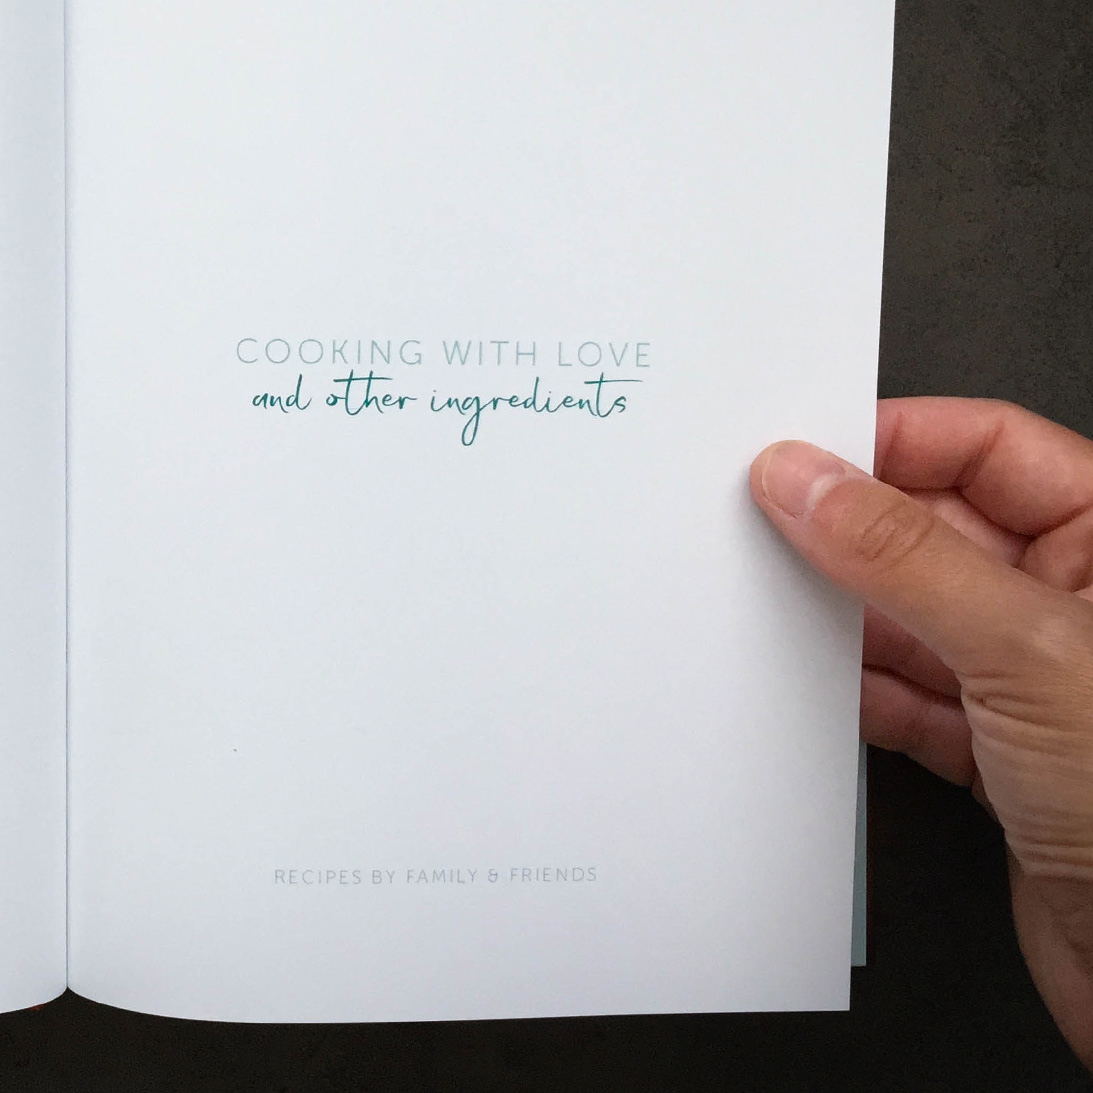 COOKING WITH LOVE
and other ingredients
RECIPES BY FAMILY & FRIENDS